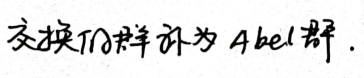 交换的群称为 Abel 群.